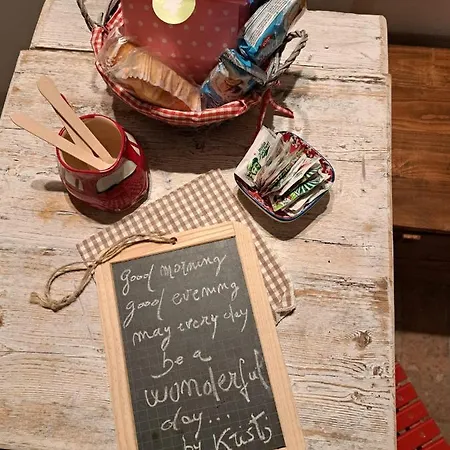 good morning
good evening
may every day
be a
wonderful
day...
by Krists